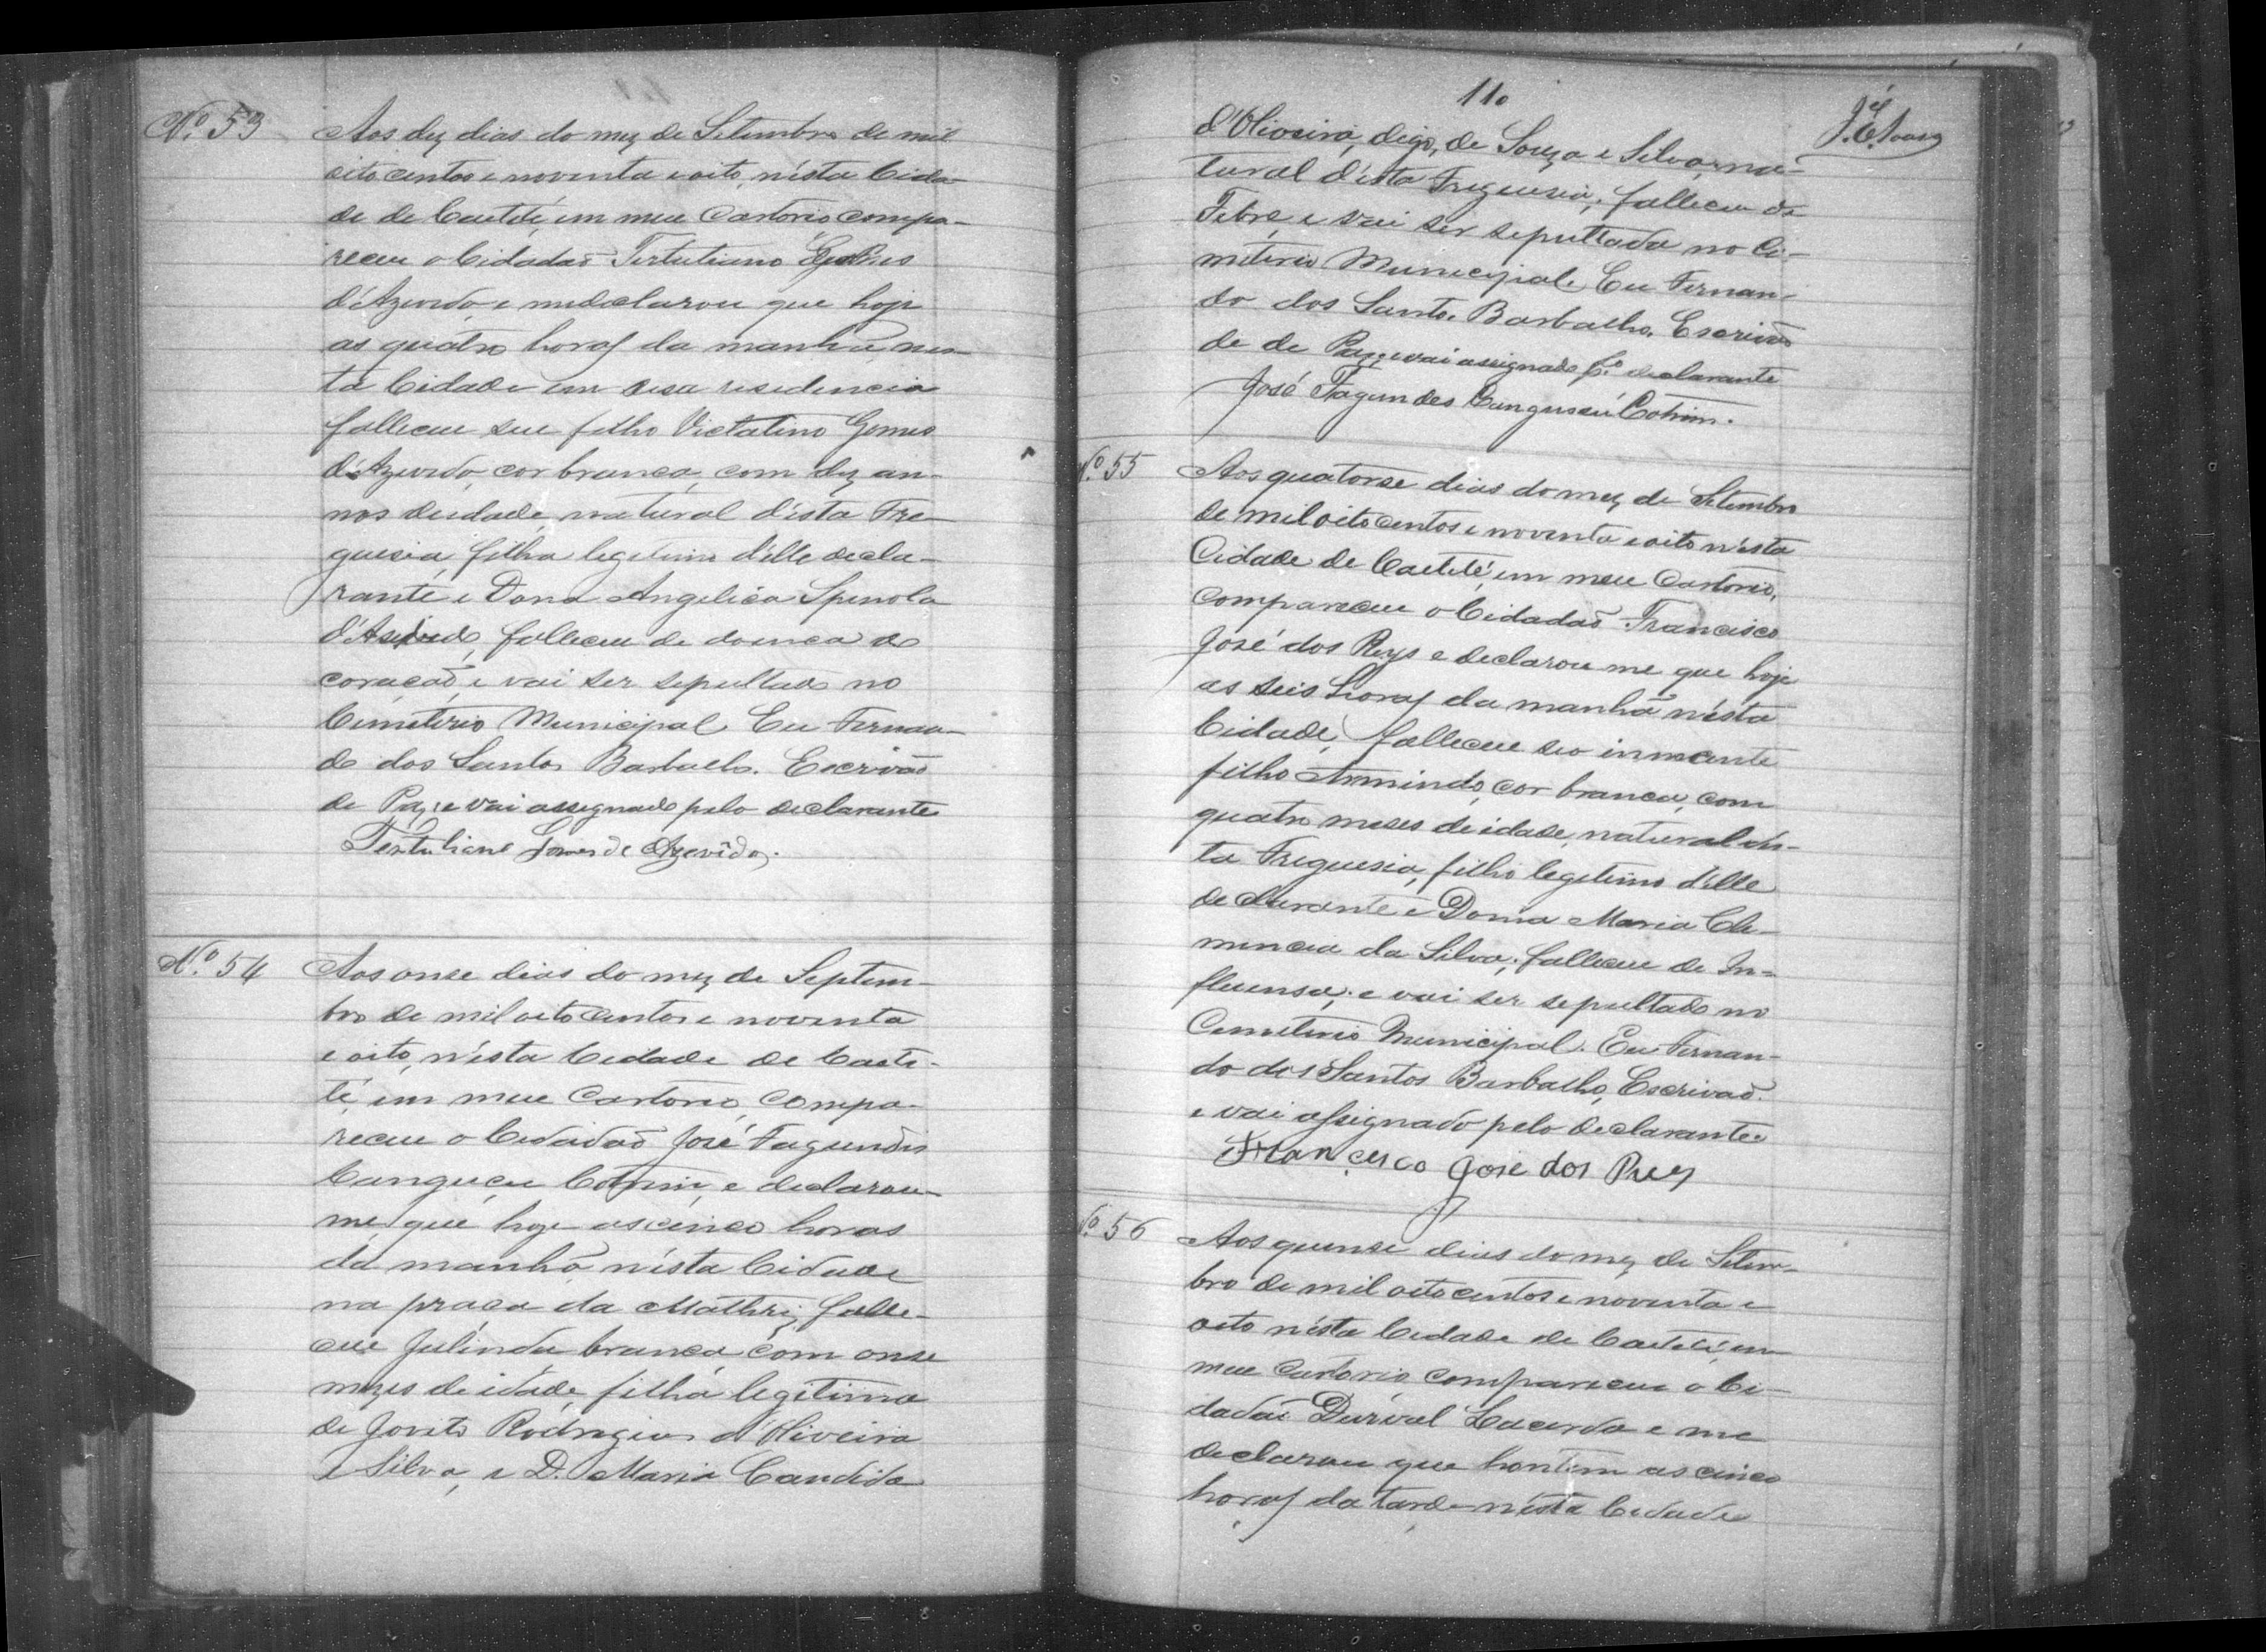 Nº 53
Aos dez dias do mez de Setembro de mil
oito centos e noventa e oito, n'ésta Cida-
de de Caetité, em meu Cartorio compa-
receu o Cidadaõ Tertuliano Gomes
d'Azevedo e me declarou que hoje
as quatro horas da manhã nes-
ta Cidade em sua residencia
falleceu seu filho Victalino Gomes
d'Azevedo, cor branca, com dez an-
nos de idade, natural d'ésta Fre-
guesia, filho legitimo d'elle decla-
rante e Dona Angelica Spinola
d'Azevedo, falleceu de doença do
coração, e vai ser sepultado no
Cemiterio Municipal. Eu Fernan-
do dos Santos Barbalho. Escrivaõ
de Paz, e vai assignado pelo declarante
Tertuliano Gomes de Azevêdo.
Nº 54
Aos onse dias do mez de Septem-
bro de mil oito centos e noventa
e oito, n'ésta Cidade de Caeti-
té, em meu Cartorio, compa-
receu o Cidadaõ José Fagundes
Canguçu Cotrim, e declarou-
me que hoje as cinco horas
da manhã n'ésta Cidade
na praça da Mathriz, falle-
ceu Julinda branca, com onse
mezes de idade, filha legitima
de Jovito Rodrigues d'Oliveira
e Silva, e D. Maria Candida
110
d'Oliveira, digo, de Souza e Silva, na-
tural d'ésta Freguesia; falleceu de
Febre, e vai ser sepultada no Ce-
miterio Municipal. Eu Fernan-
do dos Santos Barbalho. Escrivaõ
de de Paz, e vai assignado pº declarante
José Fagundes Cangussú Cotrim.
Nº 55
Aos quatorse dias do mez de Setembro
de mil oito centos e noventa e oito n'ésta
Cidade de Caetité, em meu Cartorio,
compareceu o Cidadaõ Francisco
José dos Reys e declarou me que hoje
as seis horas da manhã n'ésta
Cidade, falleceu seo innocente
filho Armindo, cor branca, com
quatro meses de idade, natural d'es-
ta Freguesia, filho legitimo d'elle
declarante e Donna Maria Cle-
mencia da Silva; falleceu de In-
fluensa; e vai ser sepultado no
Cemiterio Municipal. Eu Fernan-
do dos Santos Barbalho, Escrivaõ.
e vai assignado pelo declarante
Francisco Jose dos Reys
Nº 56
Aos quinse dias do mez de Setem-
bro de mil oito centos e noventa e
oito n'ésta Cidade de Caetité, em
meu Cartorio compareceu o Ci-
dadaõ Durval Lacerda e me
declarou que hontem as cinco
horas da tarde n'ésta Cidade